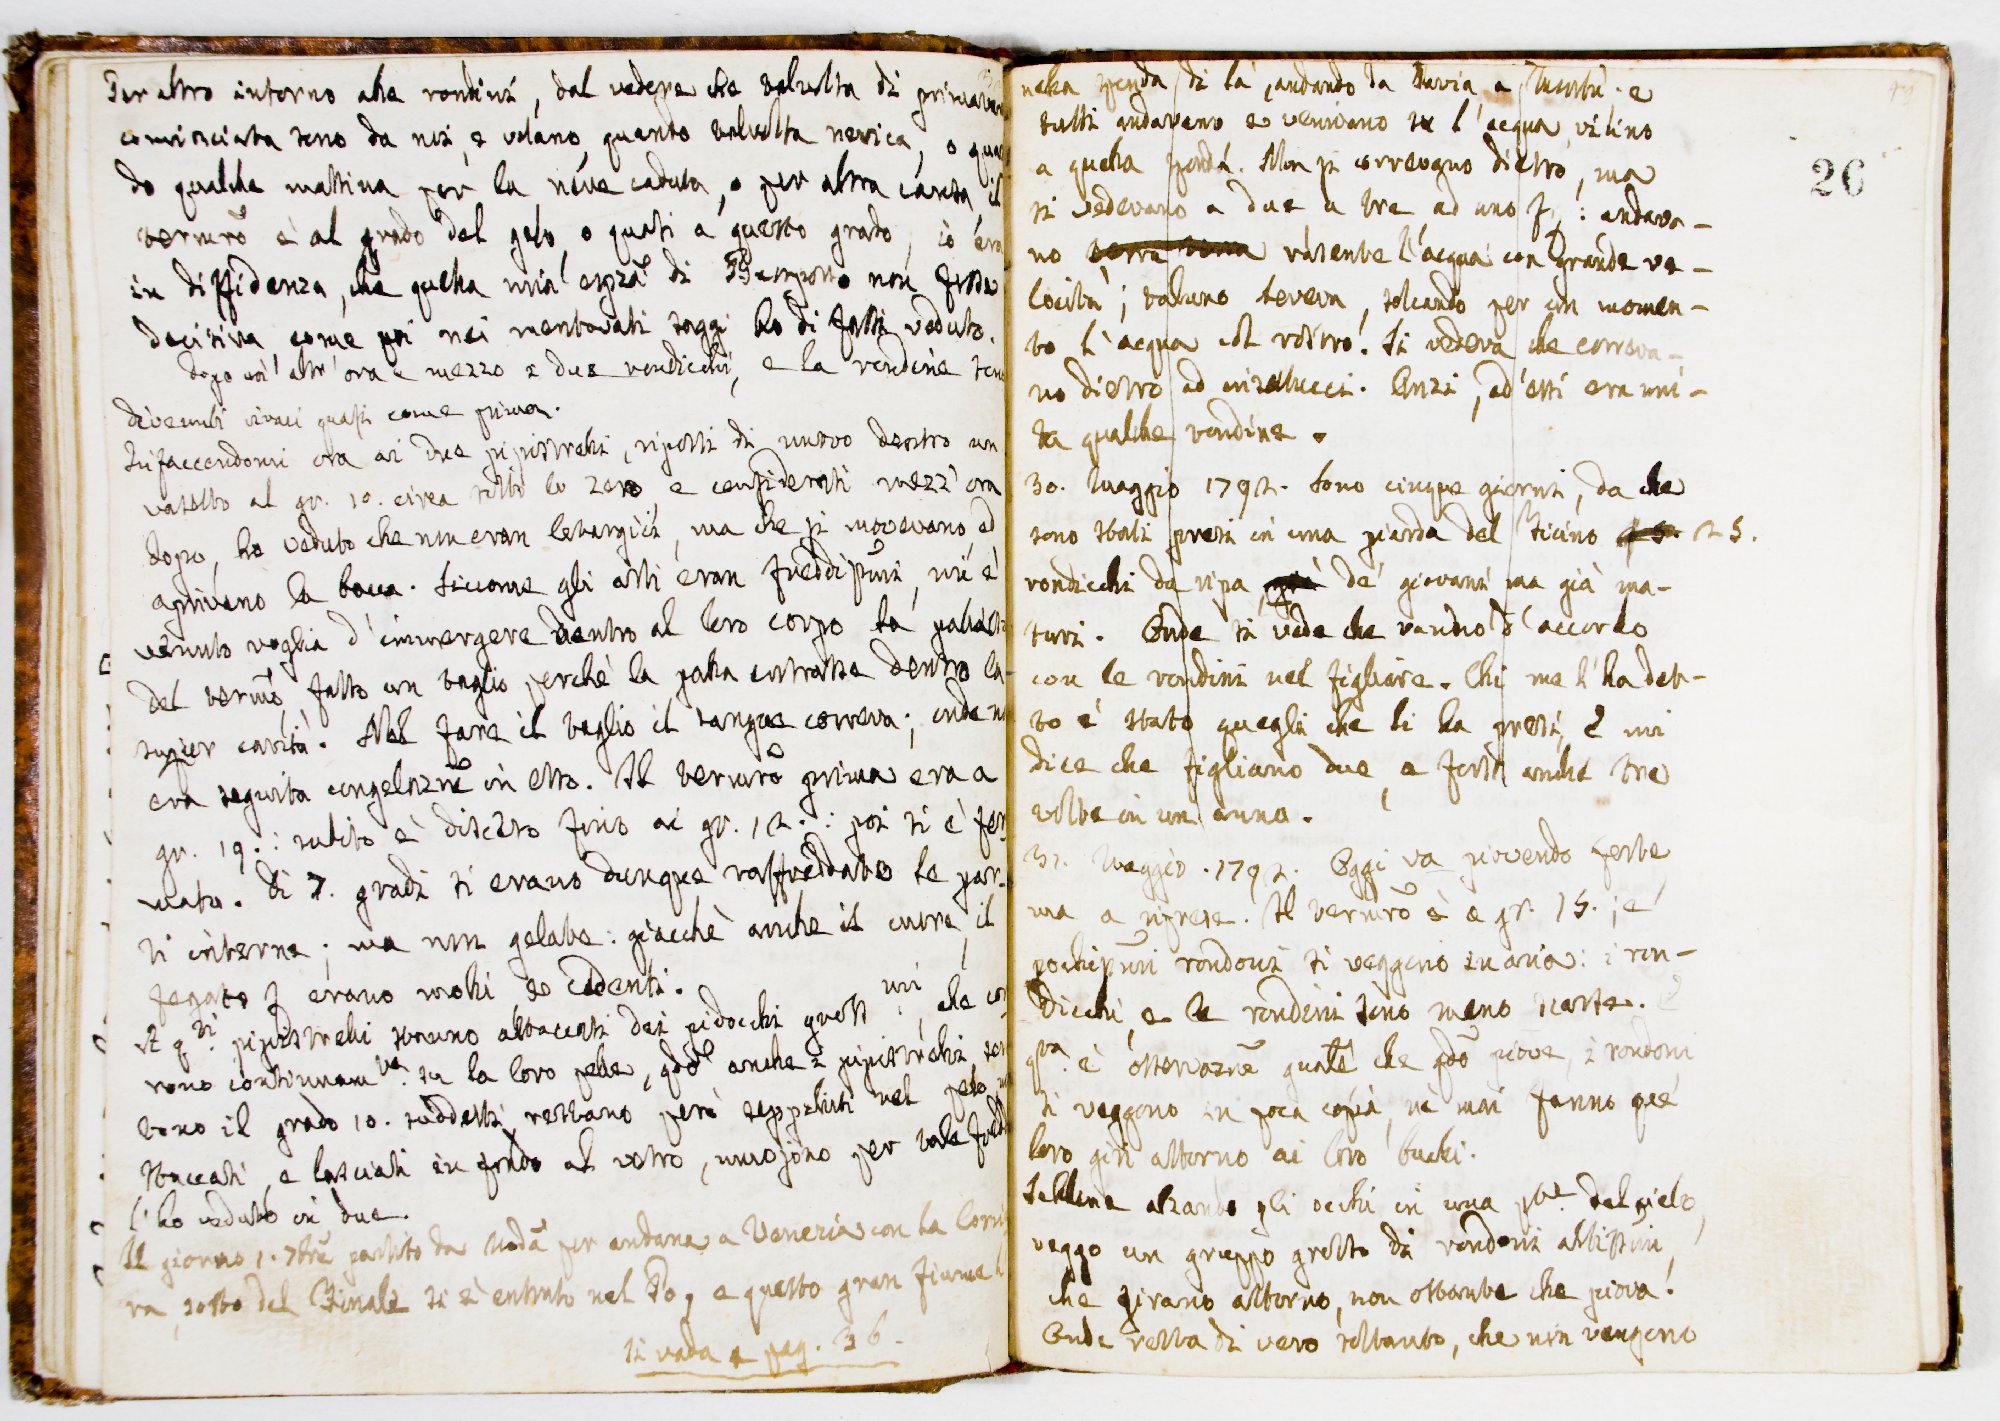 Per altro intorno alle rondini, dal vedere che talvolta di primaver
cominciata sono da noi, e volano, quanto talvolta nevica, o quan
do qualche mattina per la neve caduta, o per altra causa, il
termrō è al grado del gelo, o quasi a questo grado, io era
in diffidenza, che quella mia espza͞ di non fosse
decisiva come poi nei mentovati saggi ho di fatti veduto.
Dopo un' altr' ora e mezzo i due rondicchi, e la rondine sono
divenuti vivaci quasi come prima.
Rifaccendomi ora ai due pipistrelli, riposti di nuovo dentro un
vasetto al gr. 10. circa sotto lo zero, e considerati mezz' ora
dopo, ho veduto che non eran letargici, ma che si movevano ed
aprivano la bocca. Siccome gli astri eran freddissimi, mi è
venuto voglia d' immergere dentro al loro corpo la pallot
del termrō, fatto un taglio perchè la palla entrasse dentro la
super cavità. Nel fare il taglio il sangue correva; onde n
era seguita congelaznē in esso. Il termrō prima era a
gr. 19.: subito è disceso fino ai gr. 12.: poi si è fer
mato. Di 7. gradi si erano dunque raffreddate le par-
ti interne; ma non gelate: giacchè anche il cuore, il
fegato f erano molli e cedenti.
A qti. pipistrelli stanno attaccati dei pidocchi grossi, che cor
rono continuamte. su la loro pelle, qdō anche i pipistrelli sen
tono il grado 10. suddetti, restano però seppelliti nel pelo,
staccati, e lasciati in fondo al vetro, muojono per tale fred
l' ho veduto in due.
Il giorno 1. 7brē partito da Modā per andare a Venezia con la Corrie
ra, sotto del Finale si è entrato nel Po, e questo gran fiume
si vada a pag. 36.
26
nella sponda di là, andando da Pavia a. e
tutti andavano e venivano su l' acqua, vicino
a quella sponda. Non si correvano dietro, ma
si vedevano a due a tre ad uno f: andava-
no rasente l' acqua con grande ve-
locità; taluno beveva, solcando per un momen-
to l' acqua col rostro. Si vedeva che correva-
no dietro ad insettucci. Anzi, ad essi era uni-
ta qualche rondine.
30. Maggio 1792. Sono cinque giorni, da che
sono stati presi in una sponda del Ticino 25.
rondicchi da ripa, de' giovani ma già ma-
turi. Onde si vede che vanno d' accordo
con le rondini nel figliare. Chi me l' ha det-
to è stato quegli che li ha presi, e mi
dice che figliano due, e forse anche tre
volte in un anno.
31. Maggio. 1792. Oggi va piovendo forte
ma a riprese. Il termrō è a gr. 15.; e
pochissimi rondoni si veggono in aria: i ron-
dicchi, e le rondini sono meno scarse.
qta. è osservaznē quale che qdō piove, i rondoni
si veggono in poca copia, nè mai fanno que'
loro giri attorno ai loro buchi.
Sebbene alzando gli occhi in una pte. del cielo,
veggo un gruppo grosso di rondoni altissimi,
che girano attorno, non ostante che piova.
Onde resta di vero soltanto, che non vengono